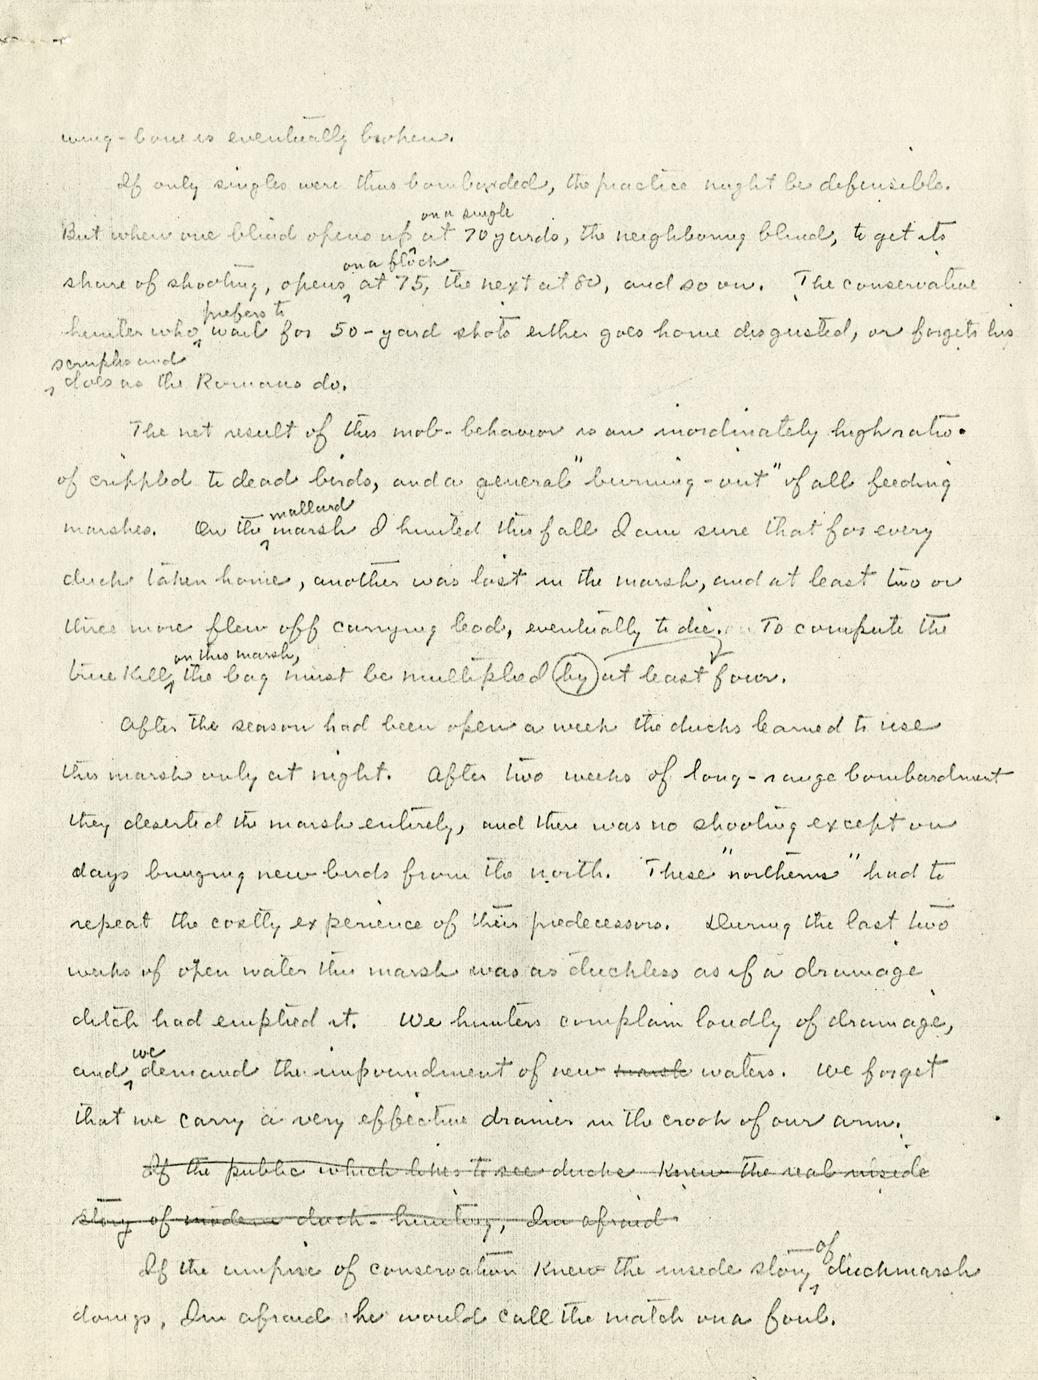 wing-bone is eventually broken.
If only singles were thus bombarded, the practice might be defensible.
on a single
But when one blind opens up at 70 yards, the neighboring blind, to get its
on a flock
share of shooting, opens at 75, the next at 80, and so on. The conservative
prefers to
hunter who wait for 50-yard shots either goes home disgusted, or forgets his
scruples and
does as the Romans do.
The net result of this mob-behavior is an inordinately high ratio
of crippled to dead birds, and a general "burning-out" of all feeding
mallard
marshes. On the marsh I hunted this fall I am sure that for every
duck taken home, another was lost in the marsh, and at least two or
three more flew off carrying lead, eventually to die. To compute the
on this marsh,
true kill, the bag must be multiplied by at least four.
After the season had been open a week the ducks learned to use
this marsh only at night. After two weeks of long-range bombardment
they deserted the marsh entirely, and there was no shooting except on
days bringing new birds from the north. These "northerns" had to
repeat the costly experience of their predecessors. During the last two
weeks of open water this marsh was as duckless as if a drainage
ditch had emptied it. We hunters complain loudly of drainage,
we
and demand the impoundment of new marsh waters. We forget
that we carry a very effective drainer in the crook of our arm.
If the public which likes to see ducks knew the real inside
story of modern duck-hunting, I'm afraid
of
If the umpire of conservation knew the inside story duckmarsh
doings, I'm afraid he would call the match on a foul.